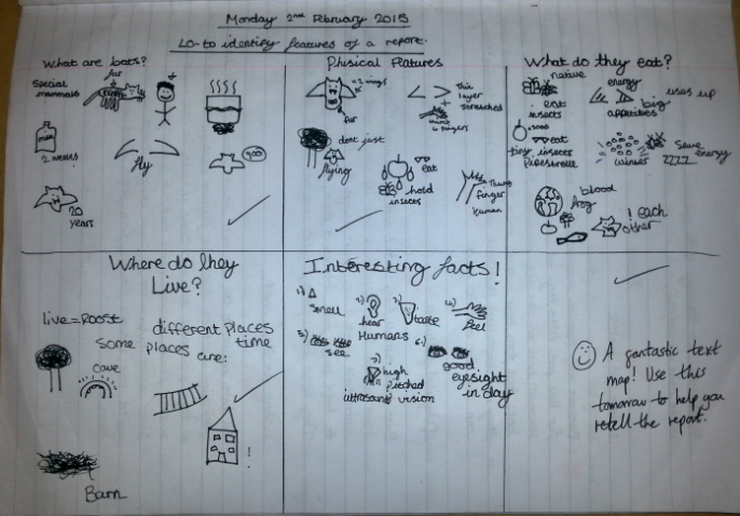 Monday 2nd February 2015
LO-to identify features of a report.
What are bats?
fur
Special mammals
milk
2 weeks
fly
goo
20 years
Physical Features
x2 wings
fur
Thin layer stretched
+
4 fingers
dont just
flying
eat
hold
insects
Thumb
finger
human
What do they eat?
native
eat
insects
energy
uses up
big
appetites
food
eat
tiny insects
Pipestrelle
winter
Save
energy
ZZZZ
blood
frog
! each
other
Where do they
Live?
live=Roost
different places
Some places are:
time
cave
!
Barn
Interesting facts!
1) smell
2) hear
Humans
3) taste
4) feel
5) see
6) good
eyesight
in day
7) high
pitched
ultrasound vision
A fantastic text
map! Use this
tomorrow to help you
retell the report.